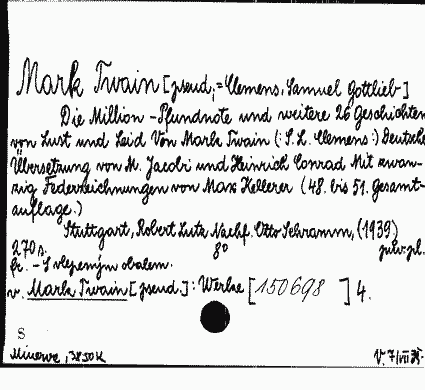 Mark Twain [pseud.,=Clemens, Samuel Gottlieb-]
Die Million-Pfundnote und weitere 26 Geschichten
von Lust und Leid Von Mark Twain (:S.L. Clemens:) Deutsche
Übersetzung von M. Jacobi und Heinrich Conrad Mit zwan-
zig Federzeichnungen von Max Kellerer (48. bis 51. Gesamt-
auflage.)
Stuttgart, Robert Lutz Nachf. Otto Schramm, (1939)
270 s. 8° juv.pl.
fr. - S vlepeným obalem.
v. Mark Twain [pseud.]: Werke [150698] 4.
S
Minerva, 38.50 K V. 7/VII